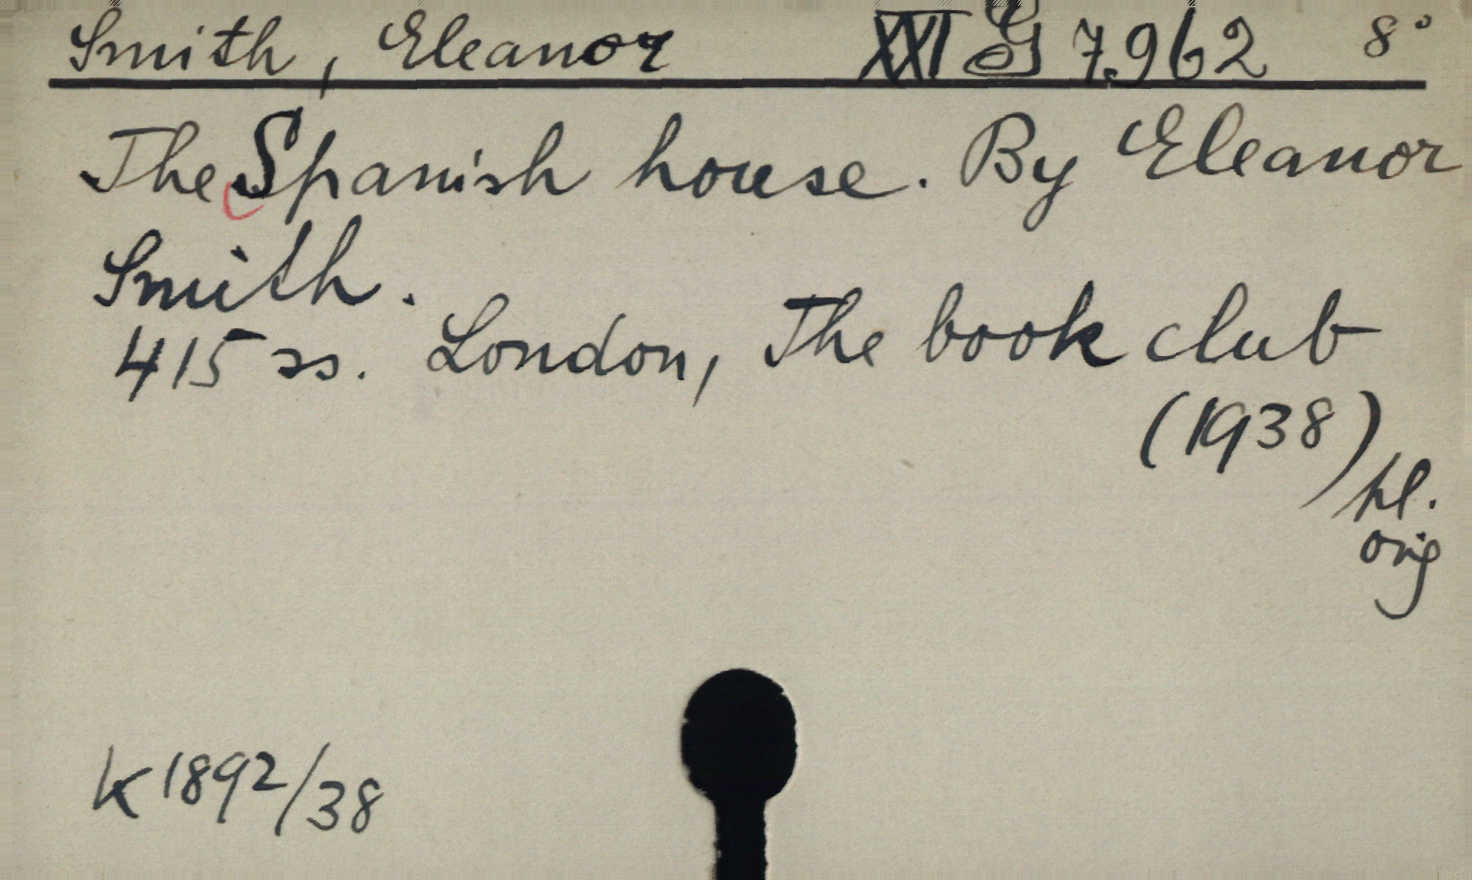 Smith, Eleanor XXI G 7.962 8°
The Spanish house. By Eleanor
Smith.
415 ss. London, The book club
(1938)
pl.
orig
K 1892/38